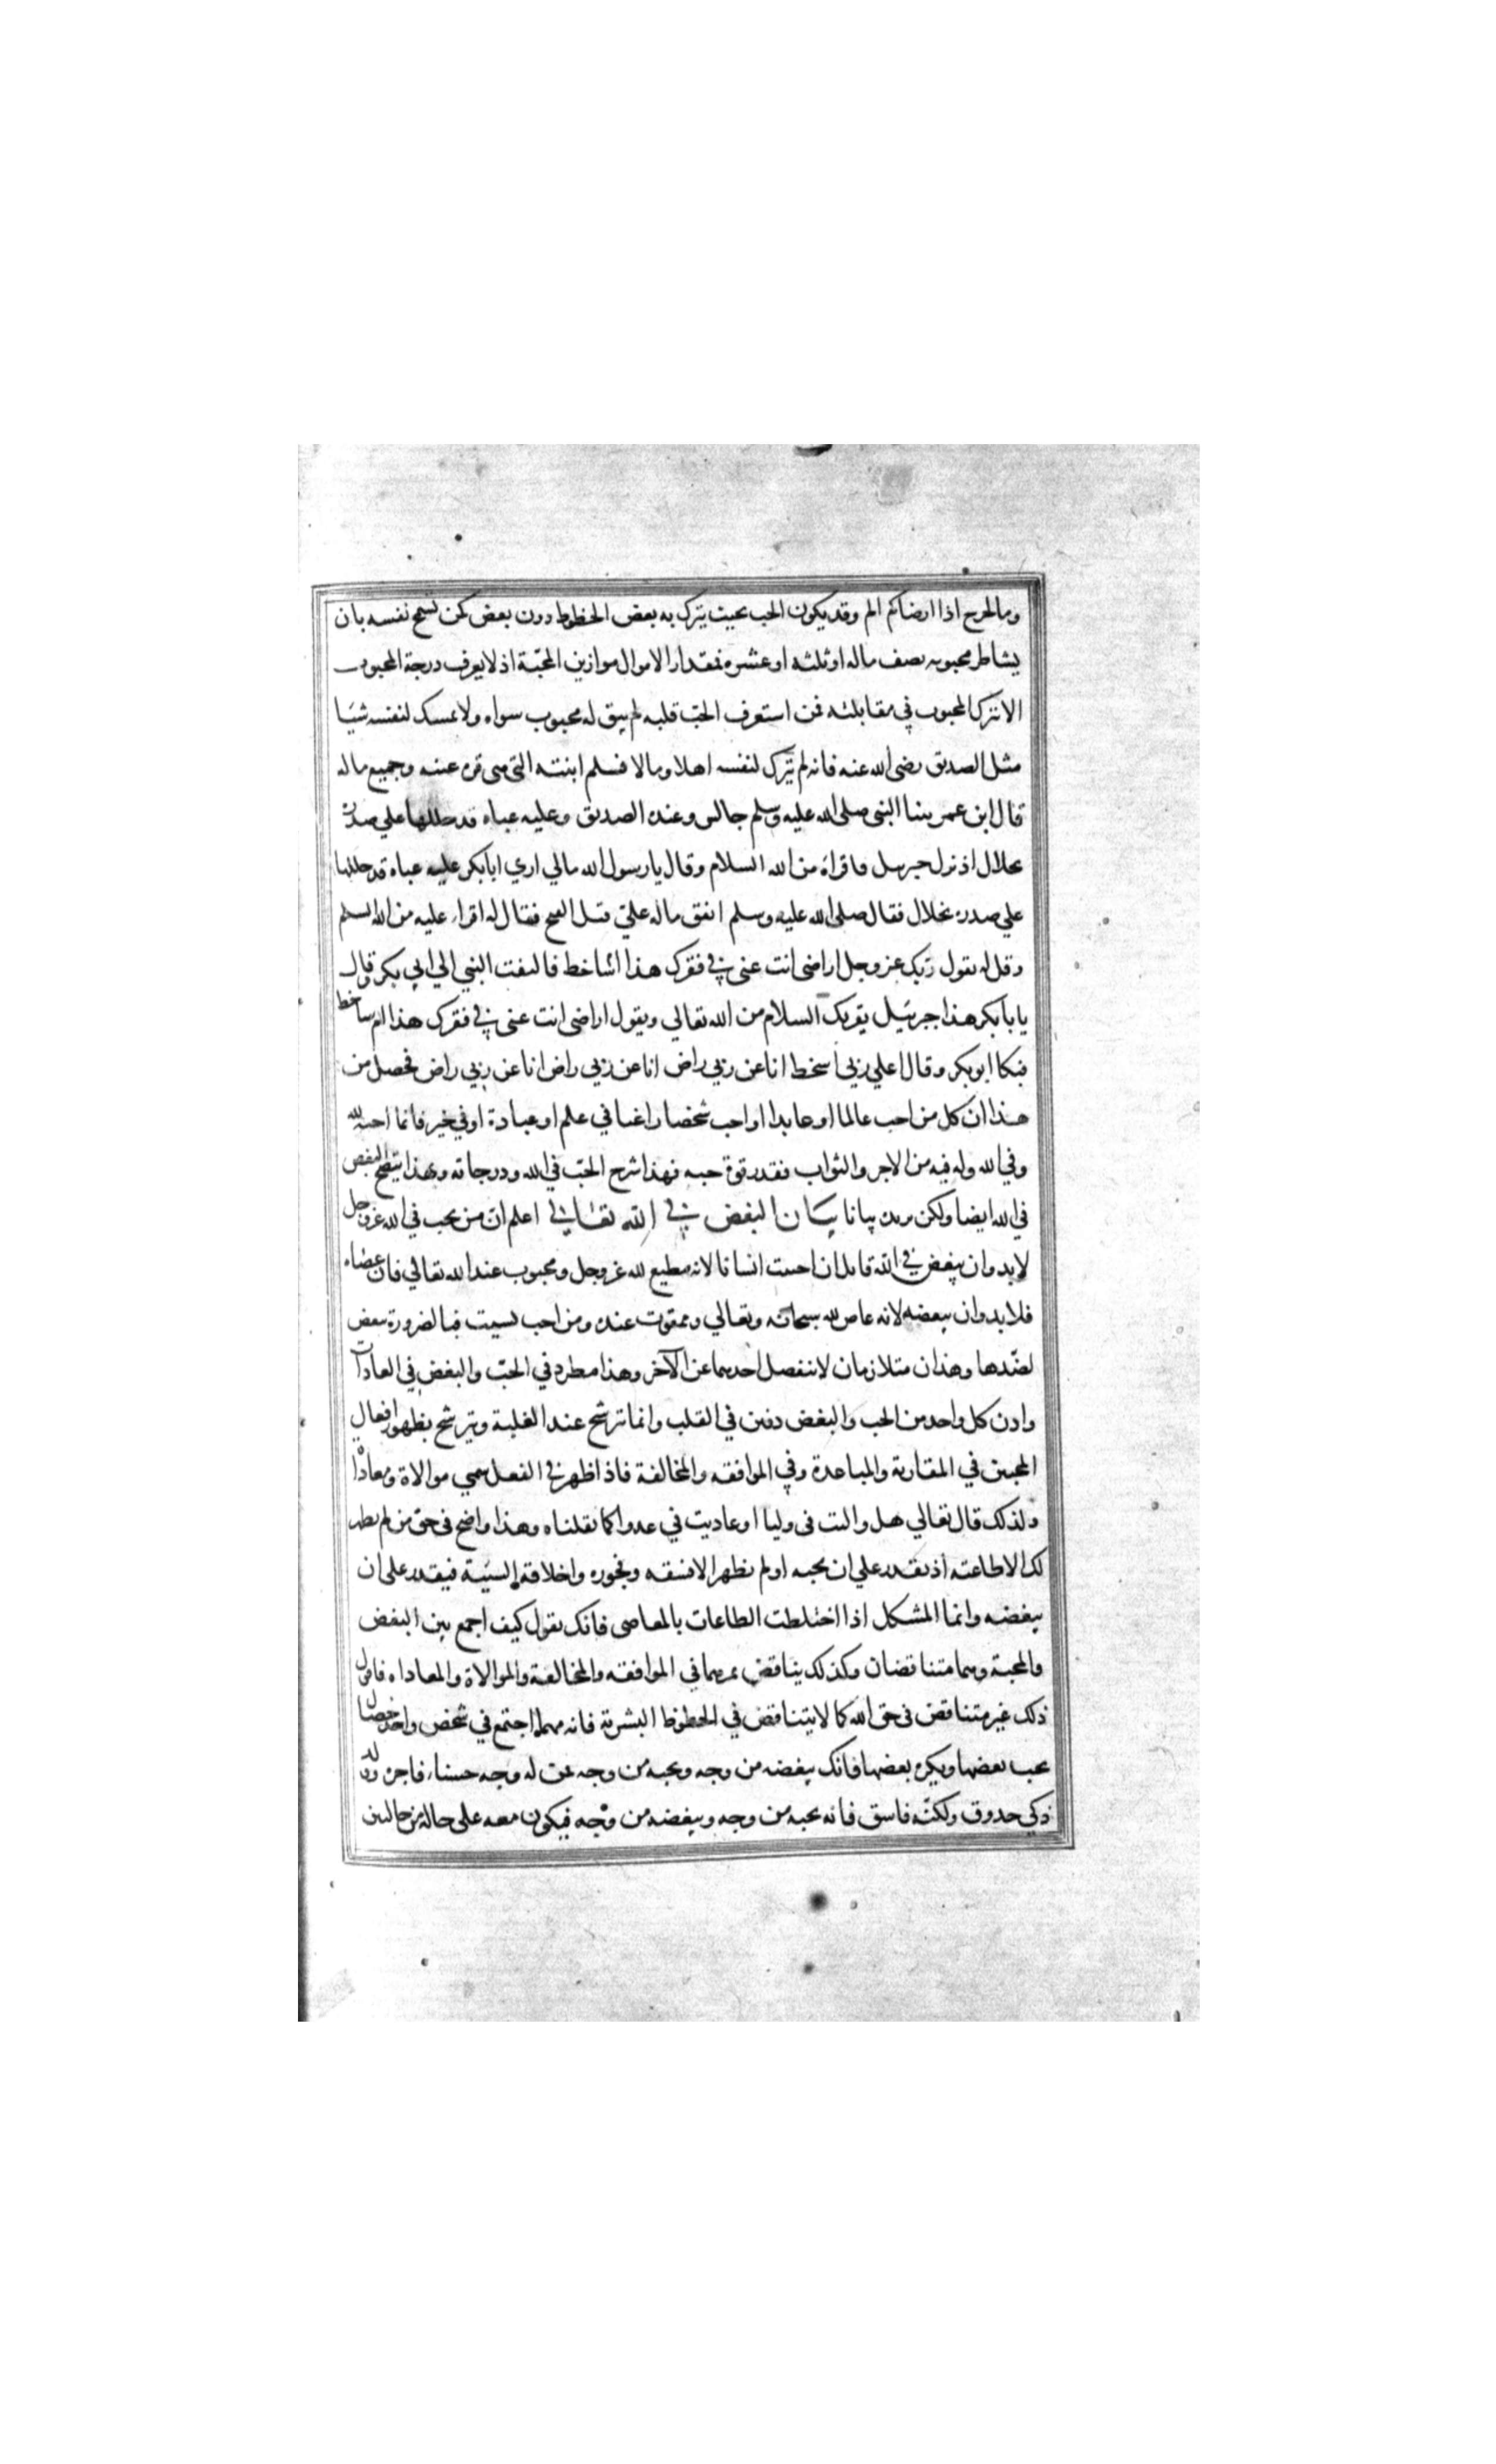 وما لجرح اذا ارضاكم الم وقد يكون الحب بحيث يترك به بعض الحظوظ دون بعض كمن تسمح نفسه بان
يشاطر محبوبه نصف ماله او ثلثه او عشره فمقدار الاموال موازين المحبّة اذ لا يعرف درجة المحبوب
الا بترك المحبوب في مقابلته فمن استغرق الحبّ قلبه لم يبق له محبوب سواه ولا يمسك لنفسه شيئا
مثل الصديق رضي الله عنه فانه لم يترك لنفسه اهلا ومالا فسلم ابنته التي هي قرة عينه وجميع ماله
قال ابن عمر بينا النبي صلى الله عليه وسلم جالس وعنده الصديق وعليه عباه قد خللها علي صدره
بخلال اذ نزل جبريل فاقراه من الله السلام وقال يا رسول الله مالي اري ابا بكر عليه عباه قد خللها
علي صدره بخلال فقال صلى الله عليه وسلم انفق ماله عليّ قبل الفتح فقال له اقراء عليه من الله السلام
وقل له يقول ربك عز وجل اراضي انت عني في فقرك هذا ام ساخط فالتفت النبي الي ابي بكر وقال
يا با بكر هذا جبرئيل يقريك السلام من الله تعالي ويقول اراضي انت عني في فقرك هذا ام ساخط
فبكا ابو بكر وقال اعلي ربي اسخط انا عن ربي راض انا عن ربي راض انا عن ربي راض فحصل من
هذا ان كل من احب عالما او عابدا او احب شخصا راغبا في علم او عبادة او في خير فانما احبه لله
وفي الله وله فيه من الاجر والثواب فقدر قوة حبه فهذا شرح الحبّ في الله ودرجاته وبهذا يتضح البغض
في الله ايضا ولكن نريده بيانا بيان البغض في الله تعالى اعلم ان من يحب في الله عز وجل
لابد وان يبغض في الله فانك ان احببت انسانا لانه مطيع لله عز وجل ومحبوب عند الله تعالي فان عصاه
فلا بد وان تبغضه لانه عاص لله سبحانه وتعالي وممقوت عنده ومن احب لسبب فبالضرورة يبغض
لضّدها وهذان متلازمان لا ينفصل احدهما عن الآخر وهذا مطرد في الحبّ والبغض في العادات
واذن كل واحد من الحب والبغض دفين في القلب وانما ترشح عند الغلبة ويترشح بظهور افعال
المحبين في المقاربة والمباعدة وفي الموافقه والمخالفة فاذا ظهر في الفعل سمي موالاة ومعاداة
ولذلك قال تعالي هل واليت في وليا او عاديت في عدوا كما نقلناه وهذا واضح في حق من لم يظهر
لك الا طاعته اذ تقدر علي ان تحبه او لم يظهر الا فسقه وفجوره واخلاقه السيئة فيقدر على ان
يبغضه وانما المشكل اذا اختلطت الطاعات بالمعاصي فانك تقول كيف اجمع بين البغض
والمحبة وهما متناقضان وكذلك يتناقض ثمرتهما في الموافقه والمخالفة والموالاة والمعاداه فاقول
ذلك غير متناقض في حق الله كما لا يتناقض في الحظوظ البشرية فانه مهما اجتمع في شخص واحد خصال
يحب بعضها ويكره بعضها فانك تبغضه من وجه وتحبه من وجه فمن له وجه حسناء فاجرة او ولد
ذكي خدوق ولكنّه فاسق فانه يحبه من وجه ويبغضه من وجه فيكون معه على حالة بين حالتين